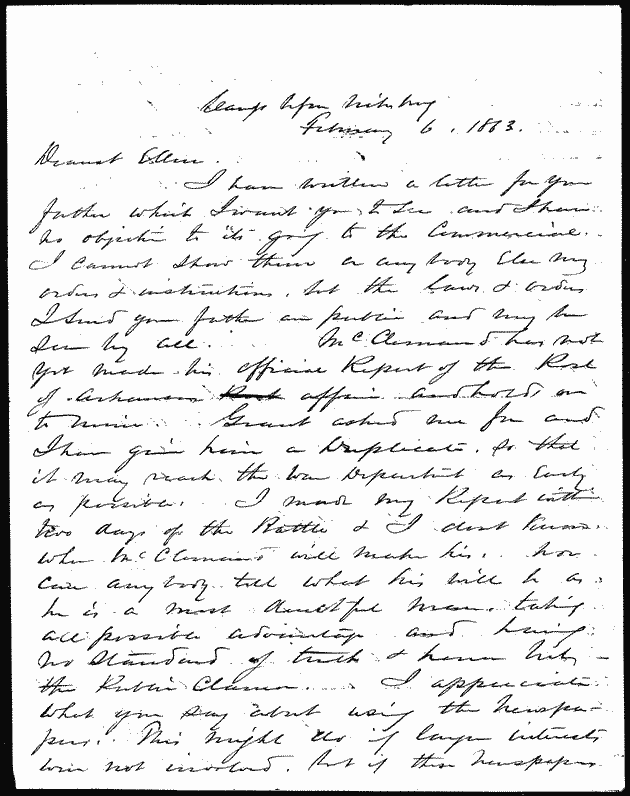 Camp before Vicksburg
February 6, 1863.
Dearest Ellen.
I have written a letter for your
father which I want you to see and I have
no objection to its going to the Commercial.
I cannot show them or any body Else my
orders & instructions, but the Laws & orders
I send your father are public and may be
seen by all. McClernand has not
yet made his official Report of the Post
of Arkansas affair and holds on
to mine. Grant asked me for and
I have given him a Duplicate, so that
it may reach the War Department as Early
as possible. I made my Report within
two days of the Battle & I dont know
when McClernand will make his. Nor
can any body tell what his will be as
he is a most deceitful man, taking
all possible advantage and having
no standard of truth & honor but
the Public Clamor. I appreciate
what you say about using the Newspa-
pers. This might do if larger interests
were not involved, but if these Newspapers